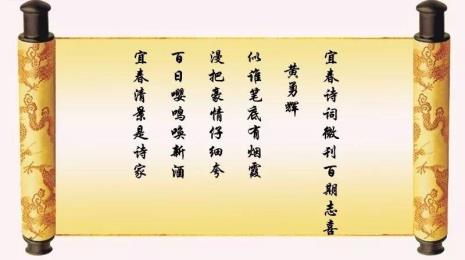 宜春诗词微刊百期志喜
黄勇辉
似谁笔底有烟霞
漫把豪情仔细夸
百日嘤鸣唤新酒
宜春清景是诗家